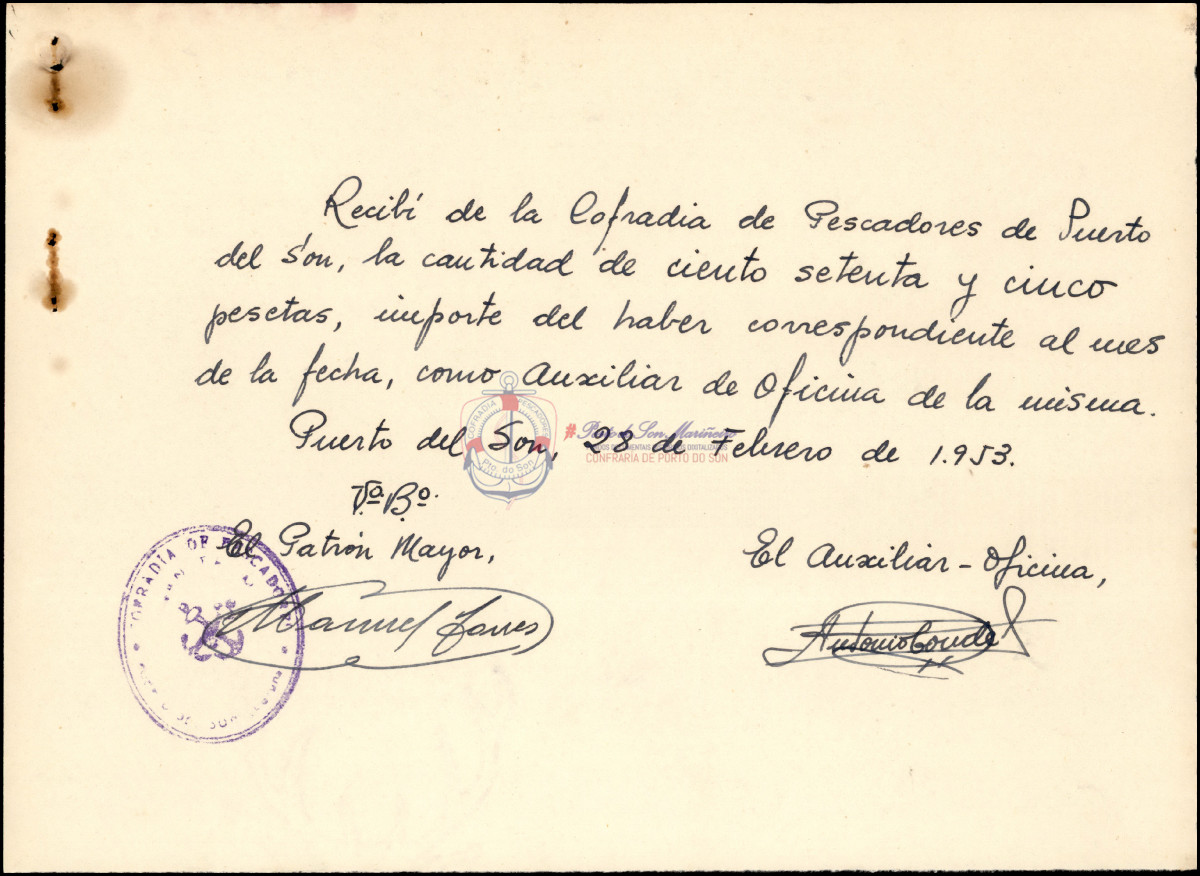 Recibí de la Cofradia de Pescadores de Puerto
del Son, la cantidad de ciento setenta y cinco
pesetas, importe del haber correspondiente al mes
de la fecha, como Auxiliar de Oficina de la misma.
Puerto del Son, 28 de Febrero de 1.953.
COFRADIA PESCADORES
Pto. do Son
#Porto do Son Mariñeiro
DIXITALIZADOS
CONFRARÍA DE PORTO DO SON
Vº.Bº.
El Patrón Mayor,
El Auxiliar-Oficina,
COFRADIA DE PESCADORES
Manuel Torres
Antonio Conde